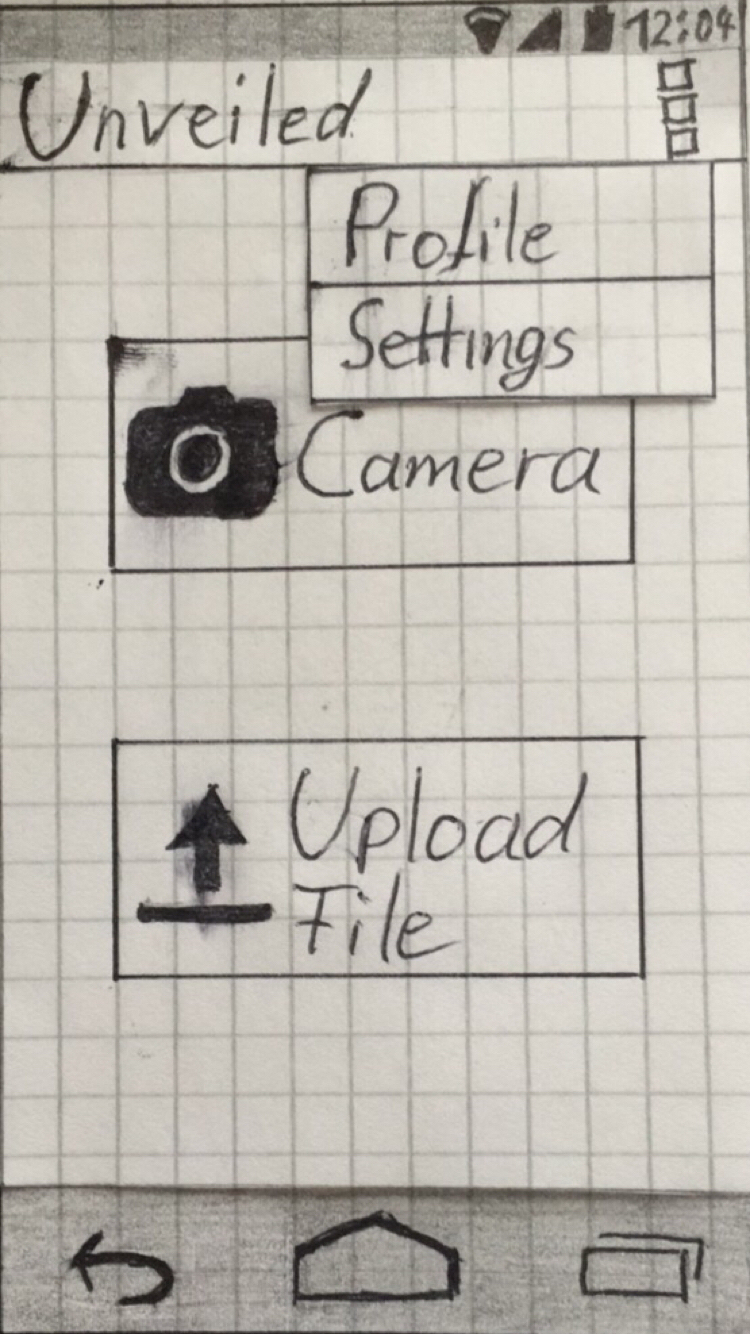 12:04
Unveiled
Profile
Settings
Camera
Upload
File